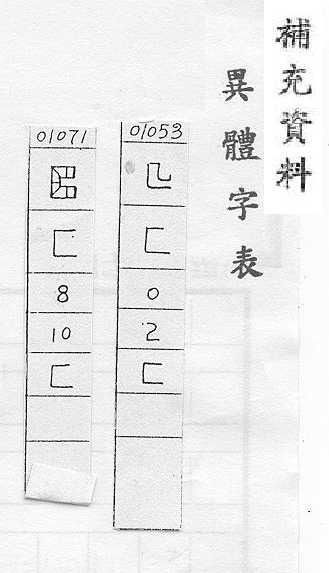 補充資料
異體字表
01053
匚
0
2
匚
01071
匚
8
10
匚